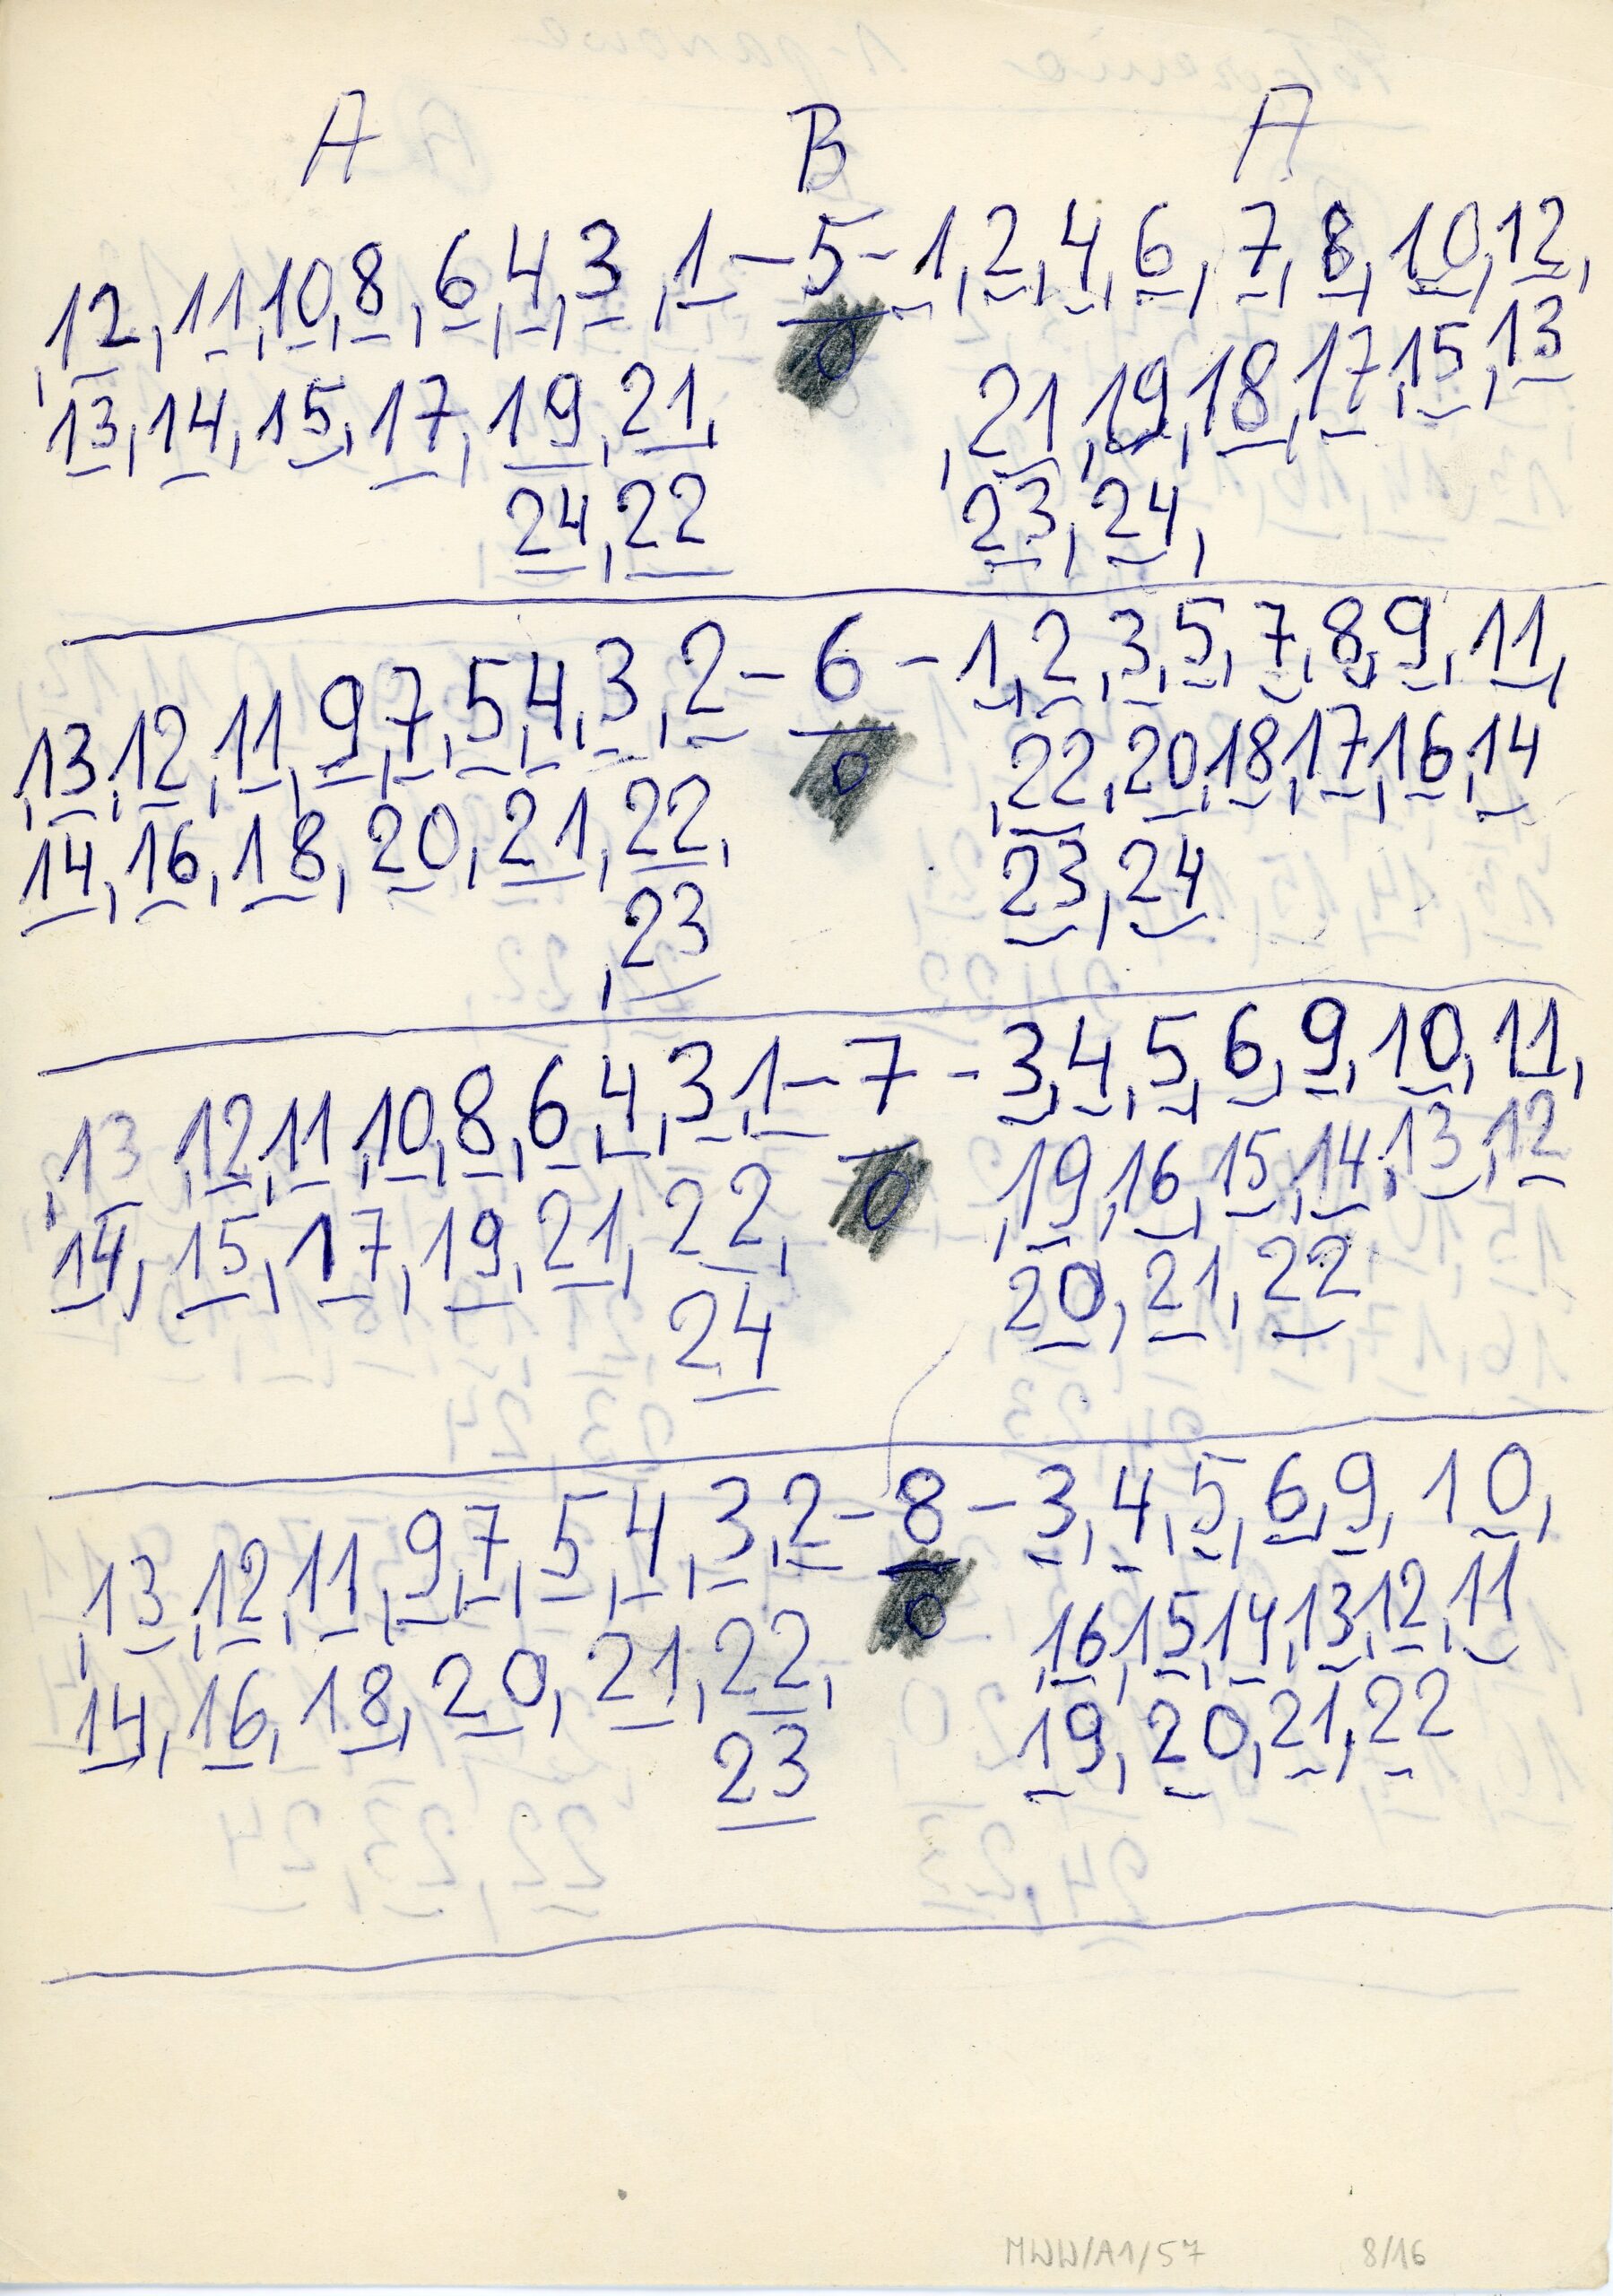 A B A
,12,11,10,8,6,4,3,1-5-1,2,4,6,7,8,10,12,
0
13,14,15,17,19,21, ,21,19,18,17,15,13
24,22 23,24,
,13,12,11,9,7,5,4,3,2-6-1,2,3,5,7,8,9,11,
0
14,16,18,20,21,22, ,22,20,18,17,16,14
,23 23,24
,13,12,11,10,8,6,4,3,1-7-3,4,5,6,9,10,11,
0
14,15,17,19,21,22, ,19,16,15,14,13,12
24 20,21,22
,13,12,11,9,7,5,4,3,2-8-3,4,5,6,9,10,
0
14,16,18,20,21,22, ,16,15,14,13,12,11
23 19,20,21,22
MWW/A1/57 8/16